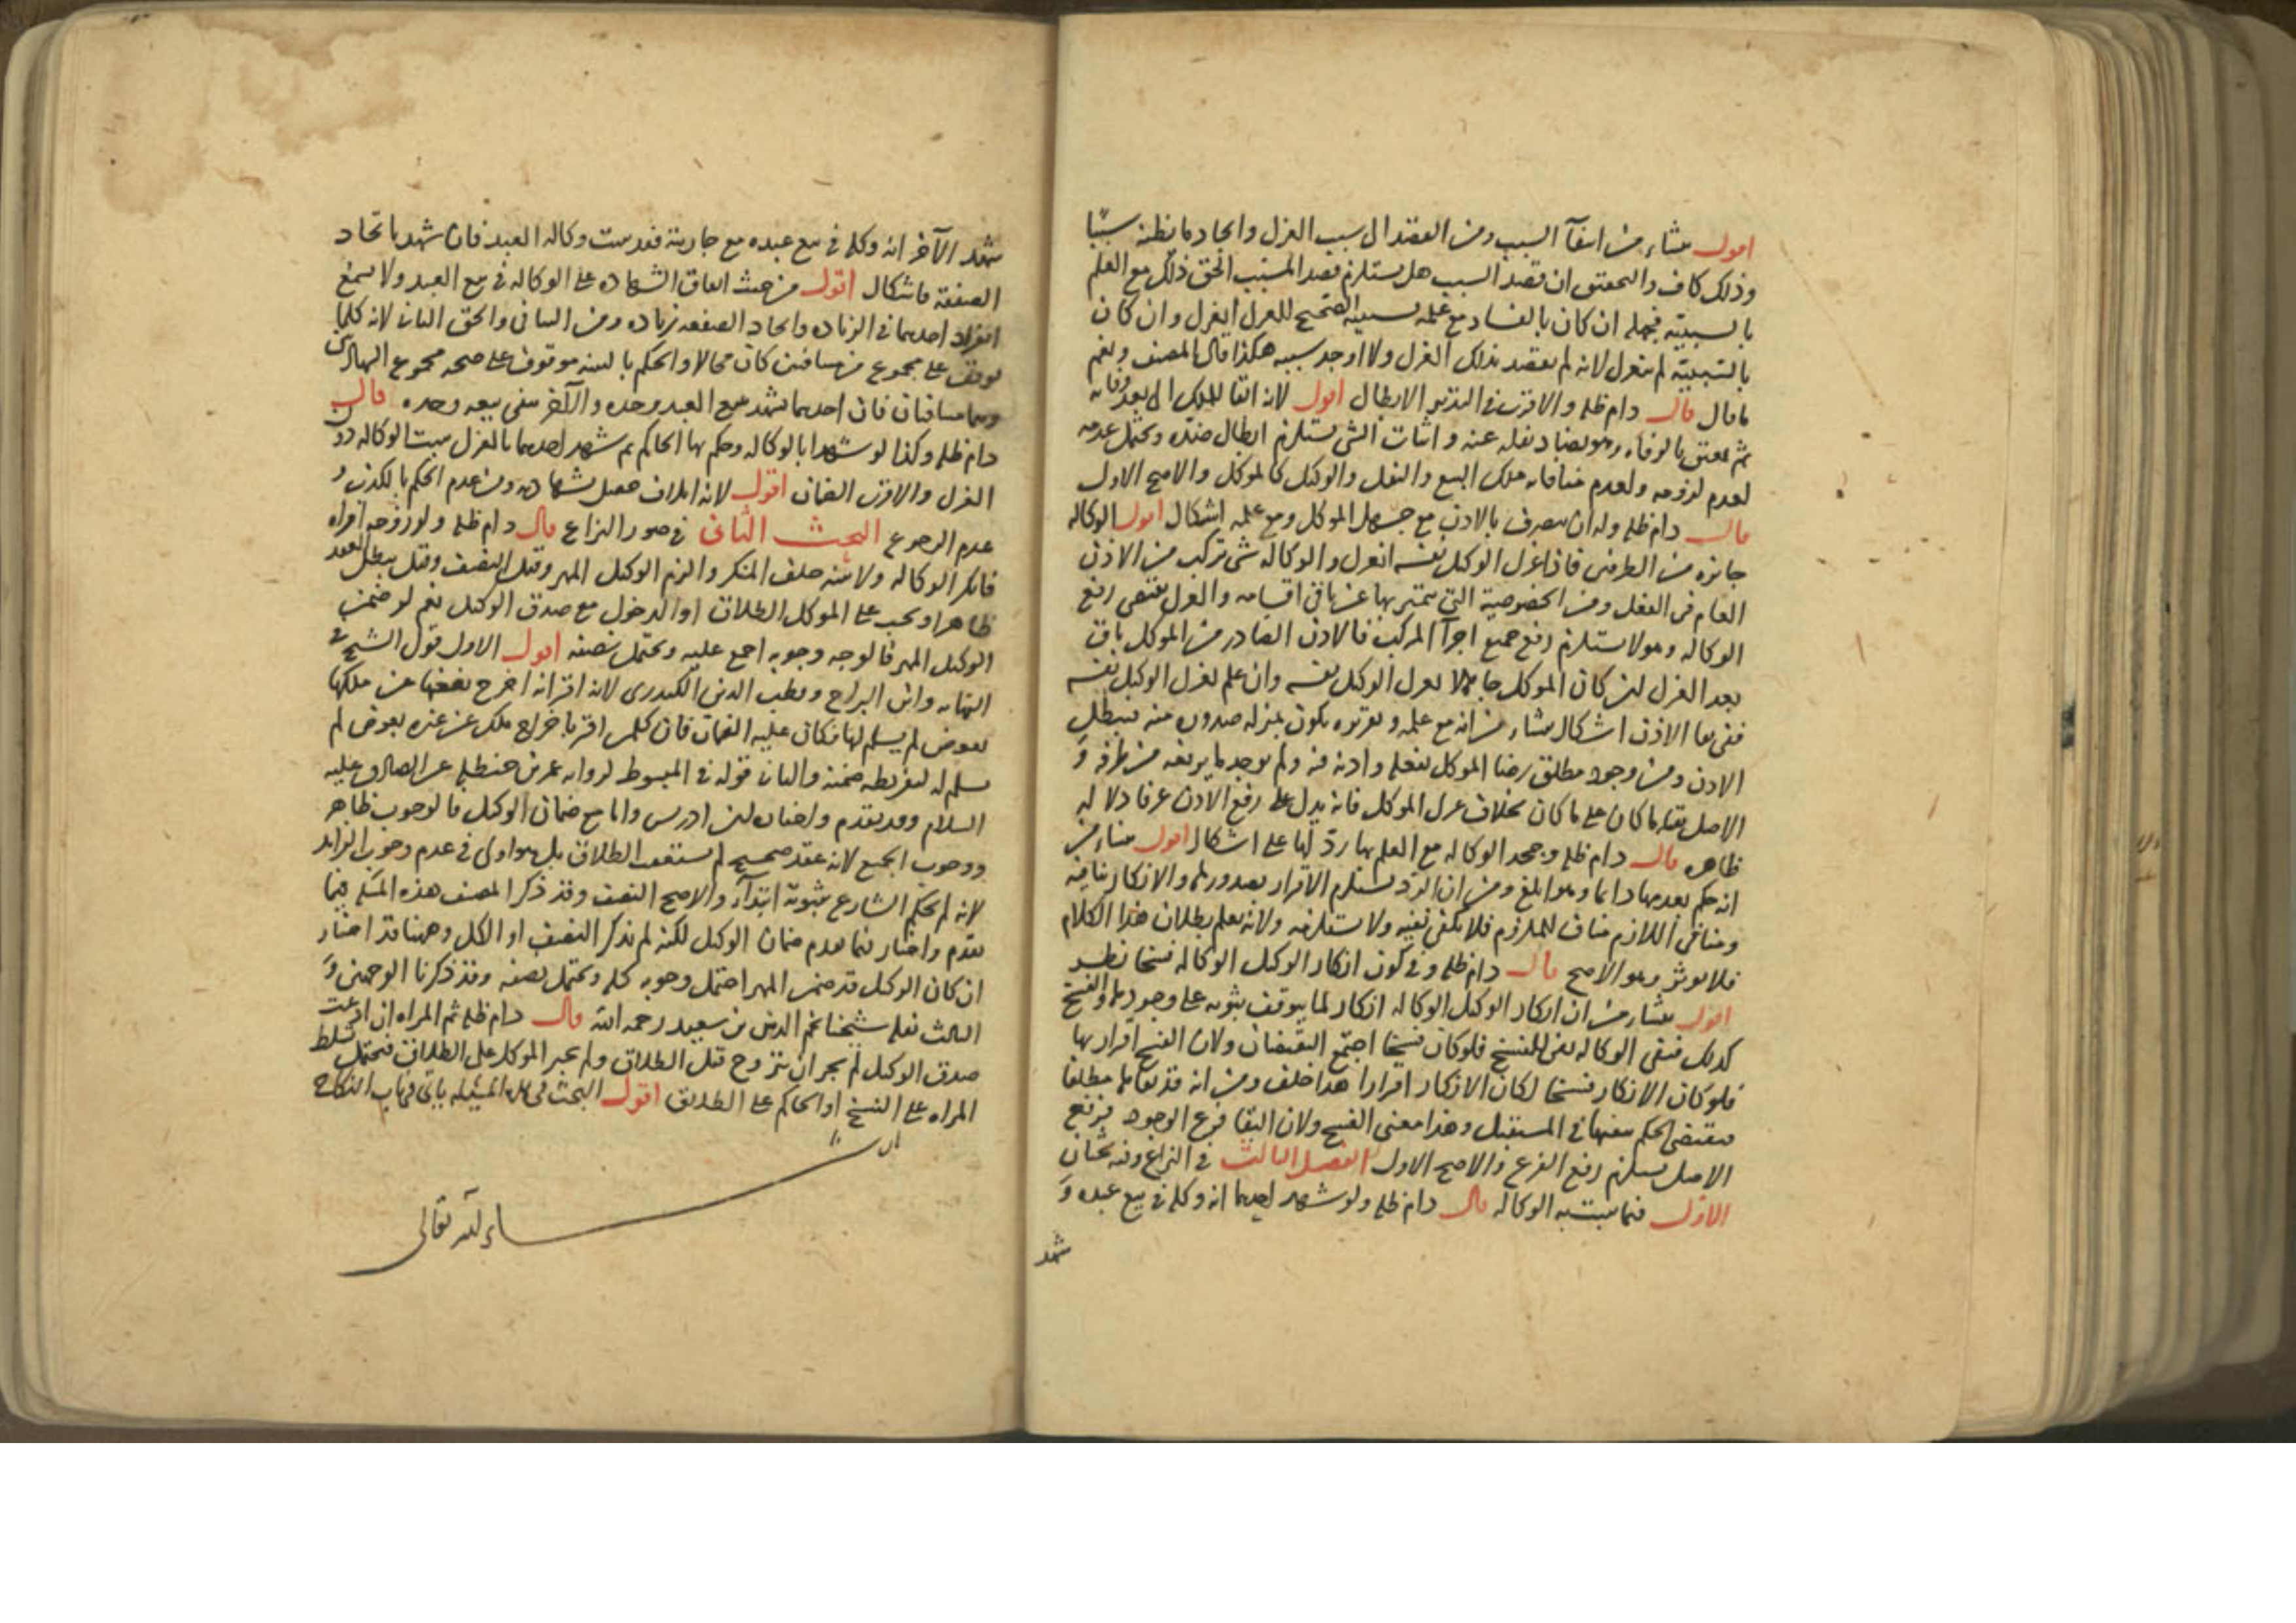 اقول منشاء من انتفآ السبب ومن القصد الى سبب العزل وايجاد ما يظنه سببًا
وذلك كاف والتحقيق ان قصد السبب هل يستلزم قصد المسبب الحق ذلك مع العلم
بالسببيه فجهله ان كان بالفساد مع علمه بسببيه الصحيح للعزل انعزل وان كان
بالسببية لم ينعزل لانه لم يقصد بذلك العزل ولا اوجد سببه هكذا قال المصنف ونعم
ما قال قال دام ظله والاقرب في التدبير الابطال اقول لانه ابقا للملك الى بعد وفاته
ثم يعتق بالوفاه وهو يضاد نقله عنه واثبات الشى يستلزم ابطال ضده ويحتمل عدمه
لعدم لزومه ولعدم منافاته ملك البيع والنقل والوكيل كالموكل والاصح الاول
قال دام ظله وله ان يتصرف بالاذن مع جهل الموكل ومع علمه اشكال اقول الوكاله
جايزه من الطرفين فاذا عزل الوكيل نفسه انعزل والوكاله شى تركب من الاذن
العام في الفعل ومن الخصوصية التي تتميز بها عن باقي اقسامه والعزل يقتضى رفع
الوكاله وهو لا يستلزم رفع جميع اجزآ المركب فالاذن الصادر من الموكل باق
بعد العزل ان كان الموكل جاهلا بعزل الوكيل نفسه وان علم بعزل الوكيل نفسه
ففي بقا الاذن اشكال منشاء من انه مع علمه وتقريره يكون بمنزله صدوره منه فيبطل
الاذن ومن وجود مطلق رضا الموكل بفعله واذنه فيه ولم يوجد ما يرفعه من طرفه و
الاصل بقاء ما كان على ما كان بخلاف عزل الموكل فانه يدل على رفع الاذن عرفا دلاله
ظاهره قال دام ظله وجحد الوكاله مع العلم بها رد لها على اشكال اقول منشاء من
انه حكم بعدمها دايما وهو ابلغ ومن ان الرد يستلزم الاقرار بصدورها والانكار ينافيه
ومنافى اللازم مناف للملزوم فلا يكفى نفيه ولا يستلزمه ولانه يعلم بطلان هذا الكلام
فلا يوثر وهو الاصح قال دام ظله وفي كون انكار الوكيل الوكاله فسخا نظر
اقول منشاء من ان انكار الوكيل الوكاله انكار لما يتوقف ثبوته على وجودها والفسخ
كذلك فنفى الوكاله نفى للفسخ فلو كان فسخا اجتمع النقيضان ولان الفسخ اقرار بها
فلو كان الانكار فسخا لكان الانكار اقرارا هذا خلف ومن انه قد نفاها مطلقا
فيقتضى الحكم بنفيها في المستقبل وهذا معنى الفسخ ولان البقا فرع الوجود فرفع
الاصل يستلزم رفع الفرع والاصح الاول الفصل الثالث في النزاع وفيه بحثان
الاول فيما يثبت به الوكاله قال دام ظله ولو شهد احدهما انه وكله في بيع عبده و
شهد
شهد الآخر انه وكله في بيع عبده مع جاريته فقد ثبت وكاله العبد فان شهد باتحاد
الصفقة فاشكال اقول من حيث اتفاق الشهاده على الوكاله في بيع العبد ولا يمنع
انفراد احدهما في الزياده واتحاد الصفقه زياده ومن التنافي والحق الثانى لانه كلما
توقف على مجموع متنافيين كان محالا والحكم بالبينه موقوف على صحه مجموع الشهادتين
وهما متنافيان فان احدهما يشهد ببيع العبد وحده والآخر ينفى بيعه وحده قال
دام ظله وكذا لو شهدا بالوكاله وحكم بها الحاكم ثم شهد احدهما بالعزل ثبت الوكاله دون
العزل والاقرب الضمان اقول لانه اتلاف حصل بشهادته ومن عدم الحكم بالكذب و
عدم الرجوع البحث الثانى في صور النزاع قال دام ظله ولو زوجه امراه
فانكر الوكاله ولا بينه حلف المنكر والزم الوكيل المهر وقيل النصف وقيل يبطل العقد
ظاهرا ويجب على الموكل الطلاق او الدخول مع صدق الوكيل نعم لو ضمن
الوكيل المهر فالوجه وجوبه اجمع عليه ويحتمل نصفه اقول الاول قول الشيخ في
النهايه وابن البراج وقطب الدين الكيدرى لانه اقر انه اخرج بضعها من ملكها
بعوض لم يسلم لها فكان عليه الضمان فان كلمن اقر باخراج ملك عن غيره بعوض لم
يسلم له لتفريطه ضمنه والثانى قوله في المبسوط لروايه عمر بن حنظله عن الصادق عليه
السلام وقد تقدم واختاره ابن ادريس واما مع ضمان الوكيل فالوجوب ظاهر
ووجوب الجميع لانه عقد صحيح لم يستعقب الطلاق بل هو اولى في عدم وجوب الزايد
لانه لم يحكم الشارع بثبوته ابتدآء والاصح النصف وقد ذكر المصنف هذه المسله فيما
تقدم واختار فيما تقدم ضمان الوكيل لكنه لم يذكر النصف او الكل وههنا قد اختار
ان كان الوكيل قد ضمن المهر احتمل وجوب كله ويحتمل نصفه وقد ذكرنا الوجهين و
الثالث نقله شيخنا نجم الدين بن سعيد رحمه الله قال دام ظله ثم المراه ان ادعت
صدق الوكيل لم يجز ان تتزوج قبل الطلاق ولم يجبر الموكل على الطلاق فيحتمل تسلط
المراه على الفسخ او الحاكم على الطلاق اقول البحث في هذه المسئله ياتى في باب النكاح
ان شاء الله تعالى